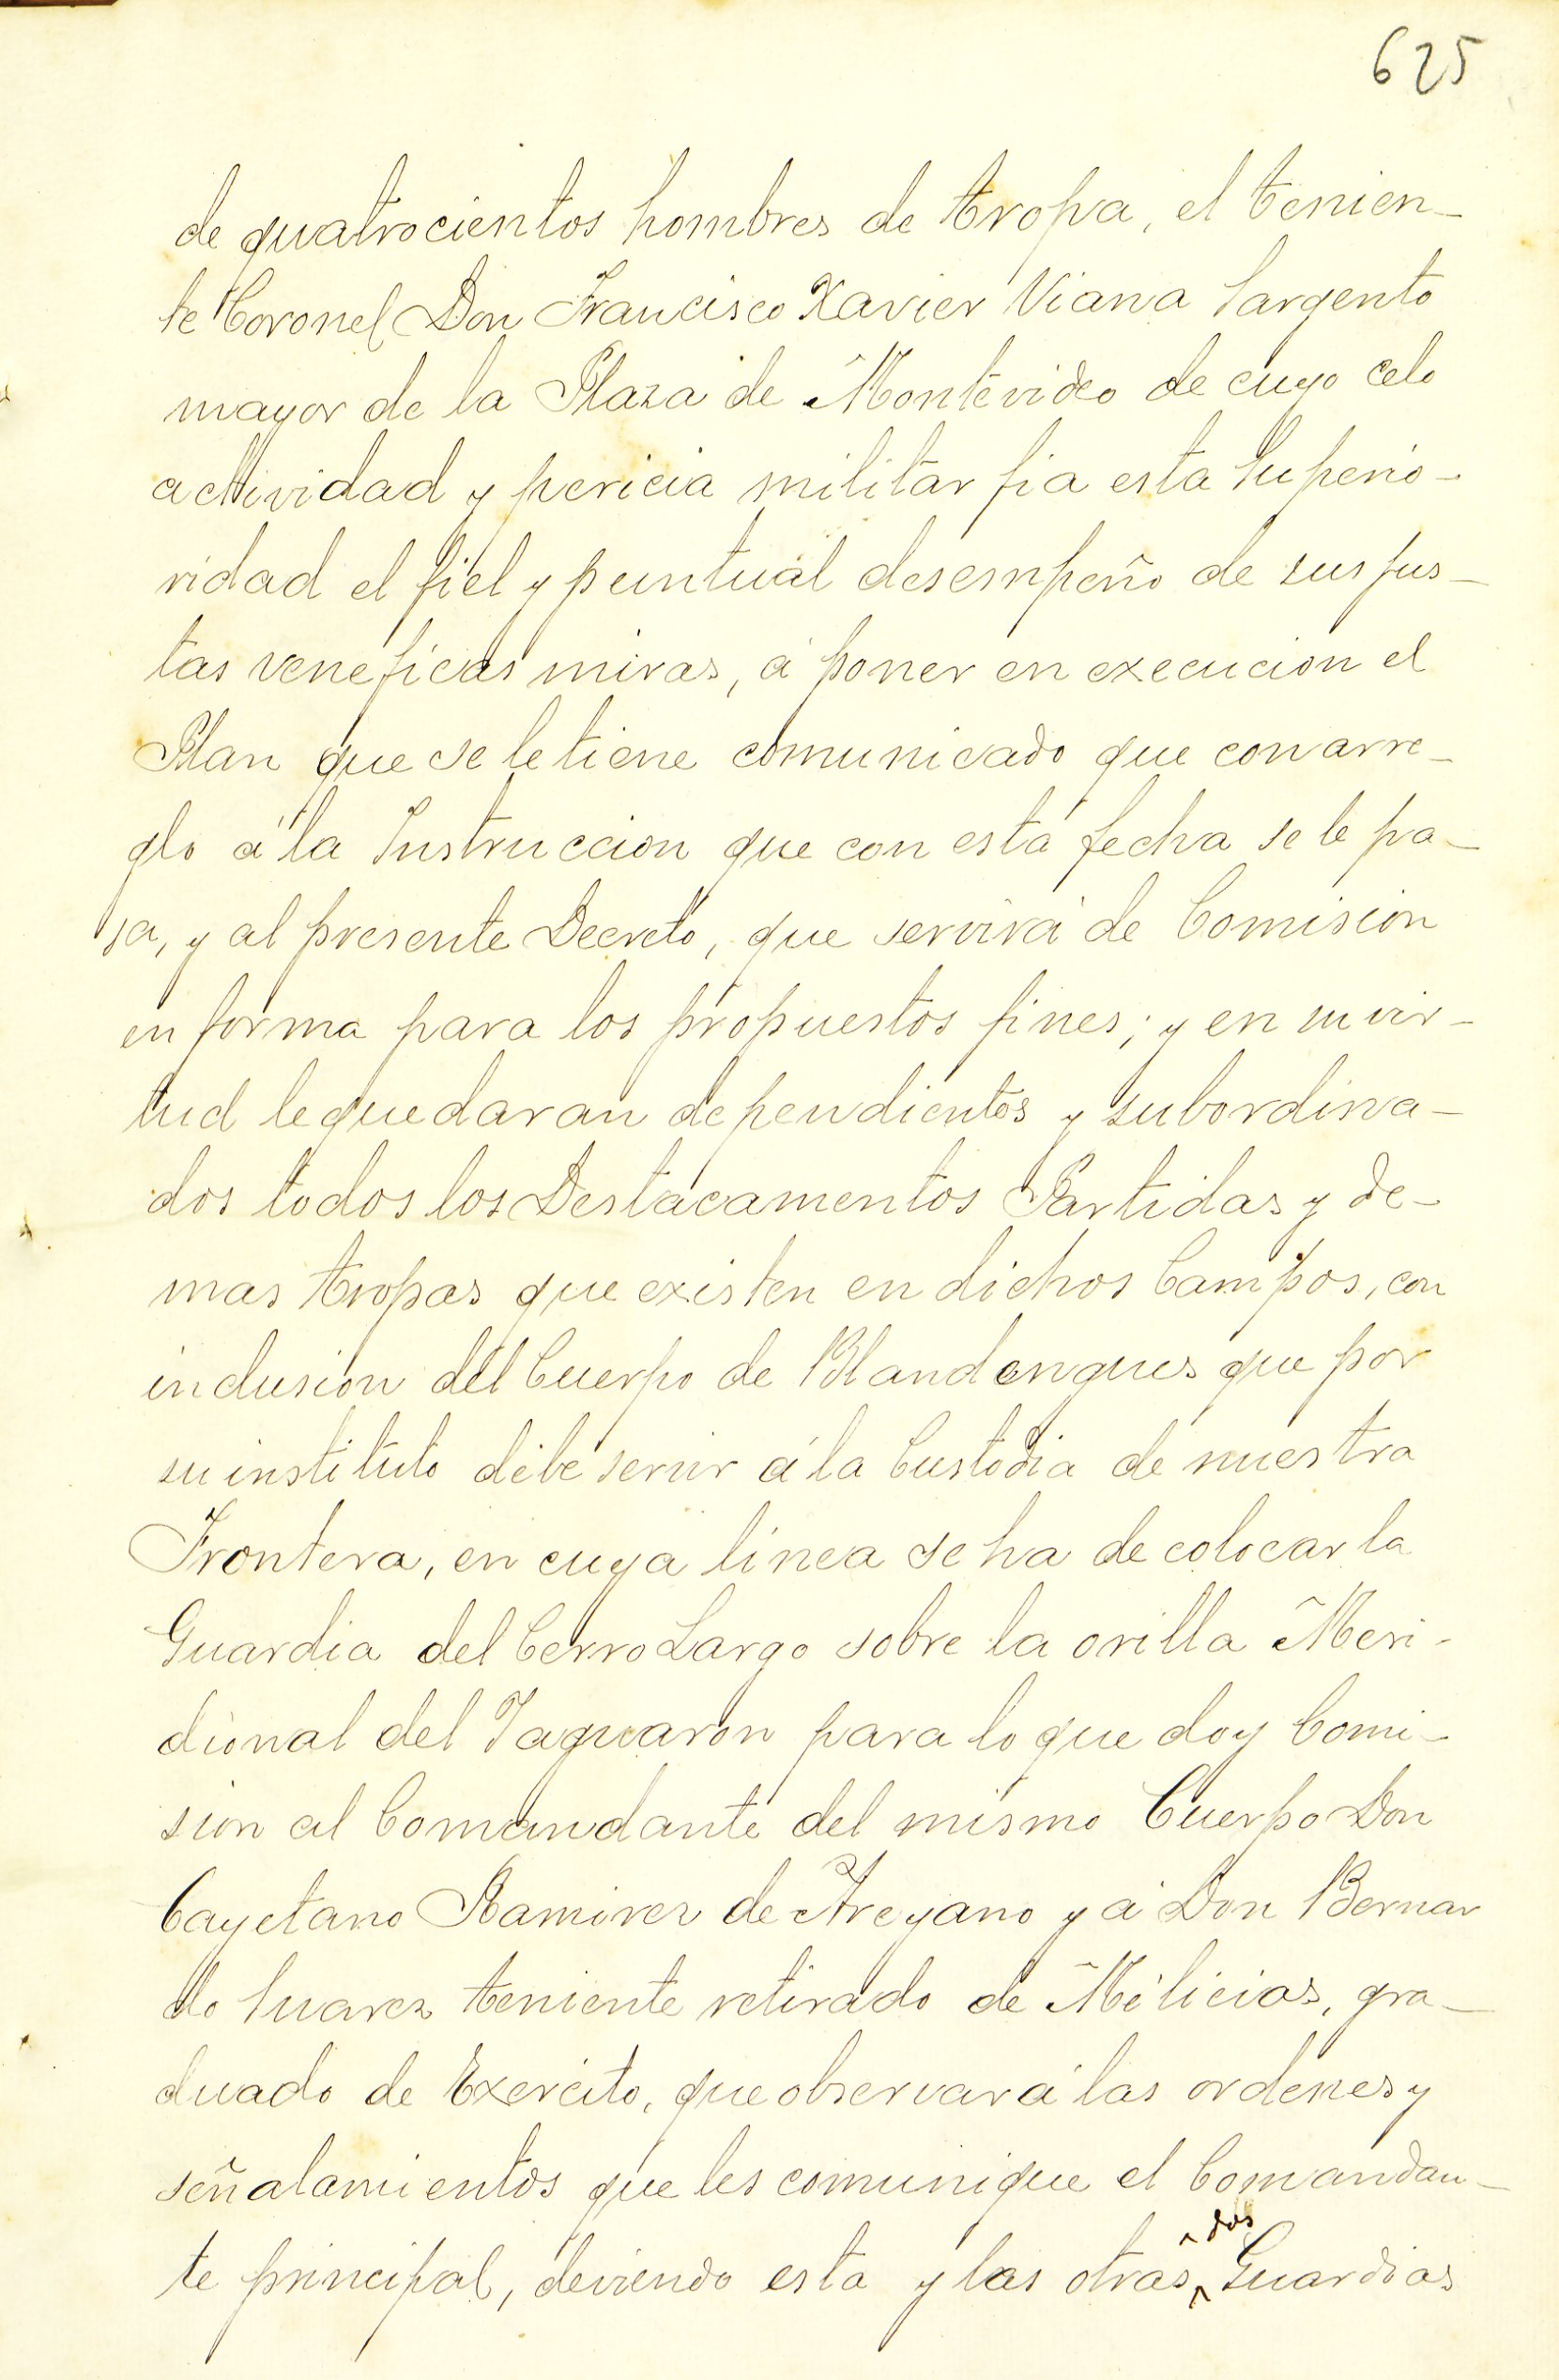 625
de quatrocientos hombres de tropa, el tenien-
te Coronel Don Francisco Xavier Viana Sargento
mayor de la Plaza de Montevideo de cuyo celo
actividad y pericia militar fia esta Superio-
ridad el fiel y puntual desempeño de sus jus-
tas veneficas miras, á poner en execucion el
Plan que se le tiene comunicado que con arre-
glo á la Instruccion que con esta fecha se le pa-
sa, y al presente Decreto, que servirá de Comision
en forma para los propuestos fines; y en su vir-
tud le quedaran dependientes y subordina-
dos todos los Destacamentos Partidas y de-
mas tropas que existen en dichos Campos, con
inclusion del Cuerpo de Blandengues que por
su instituto debe servir á la Custodia de nuestra
Frontera, en cuya linea se ha de colocar la
Guardia del Cerro Largo sobre la orilla Meri-
dional del Jaguaron para lo que doy Comi-
sion al Comandante del mismo Cuerpo Don
Cayetano Ramirez de Areyano y á Don Bernar
do Suarez teniente retirado de Milicias, gra-
duado de Exercito, que observará las ordenes y
señalamientos que les comunique el Comandan-
te principal, deviendo esta y las otras dos Guardias